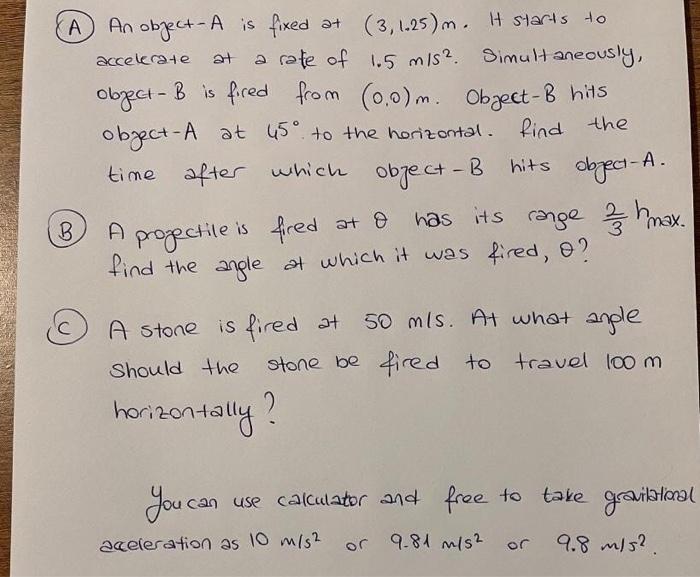 (A) An object-A is fixed at (3,1.25)m. It starts to
accelerate at a rate of 1.5 m/s². Simultaneously,
object-B is fired from (0,0)m. Object-B hits
object-A at 45° to the horizontal. find the
time after which object-B hits object-A.
(B) A projectile is fired at θ has its range 2/3 hmax.
find the angle at which it was fired, θ?
(C) A stone is fired at 50 m/s. At what angle
should the stone be fired to travel 100 m
horizontally?
You can use calculator and free to take gravitational
acceleration as 10 m/s² or 9.81 m/s² or 9.8 m/s².